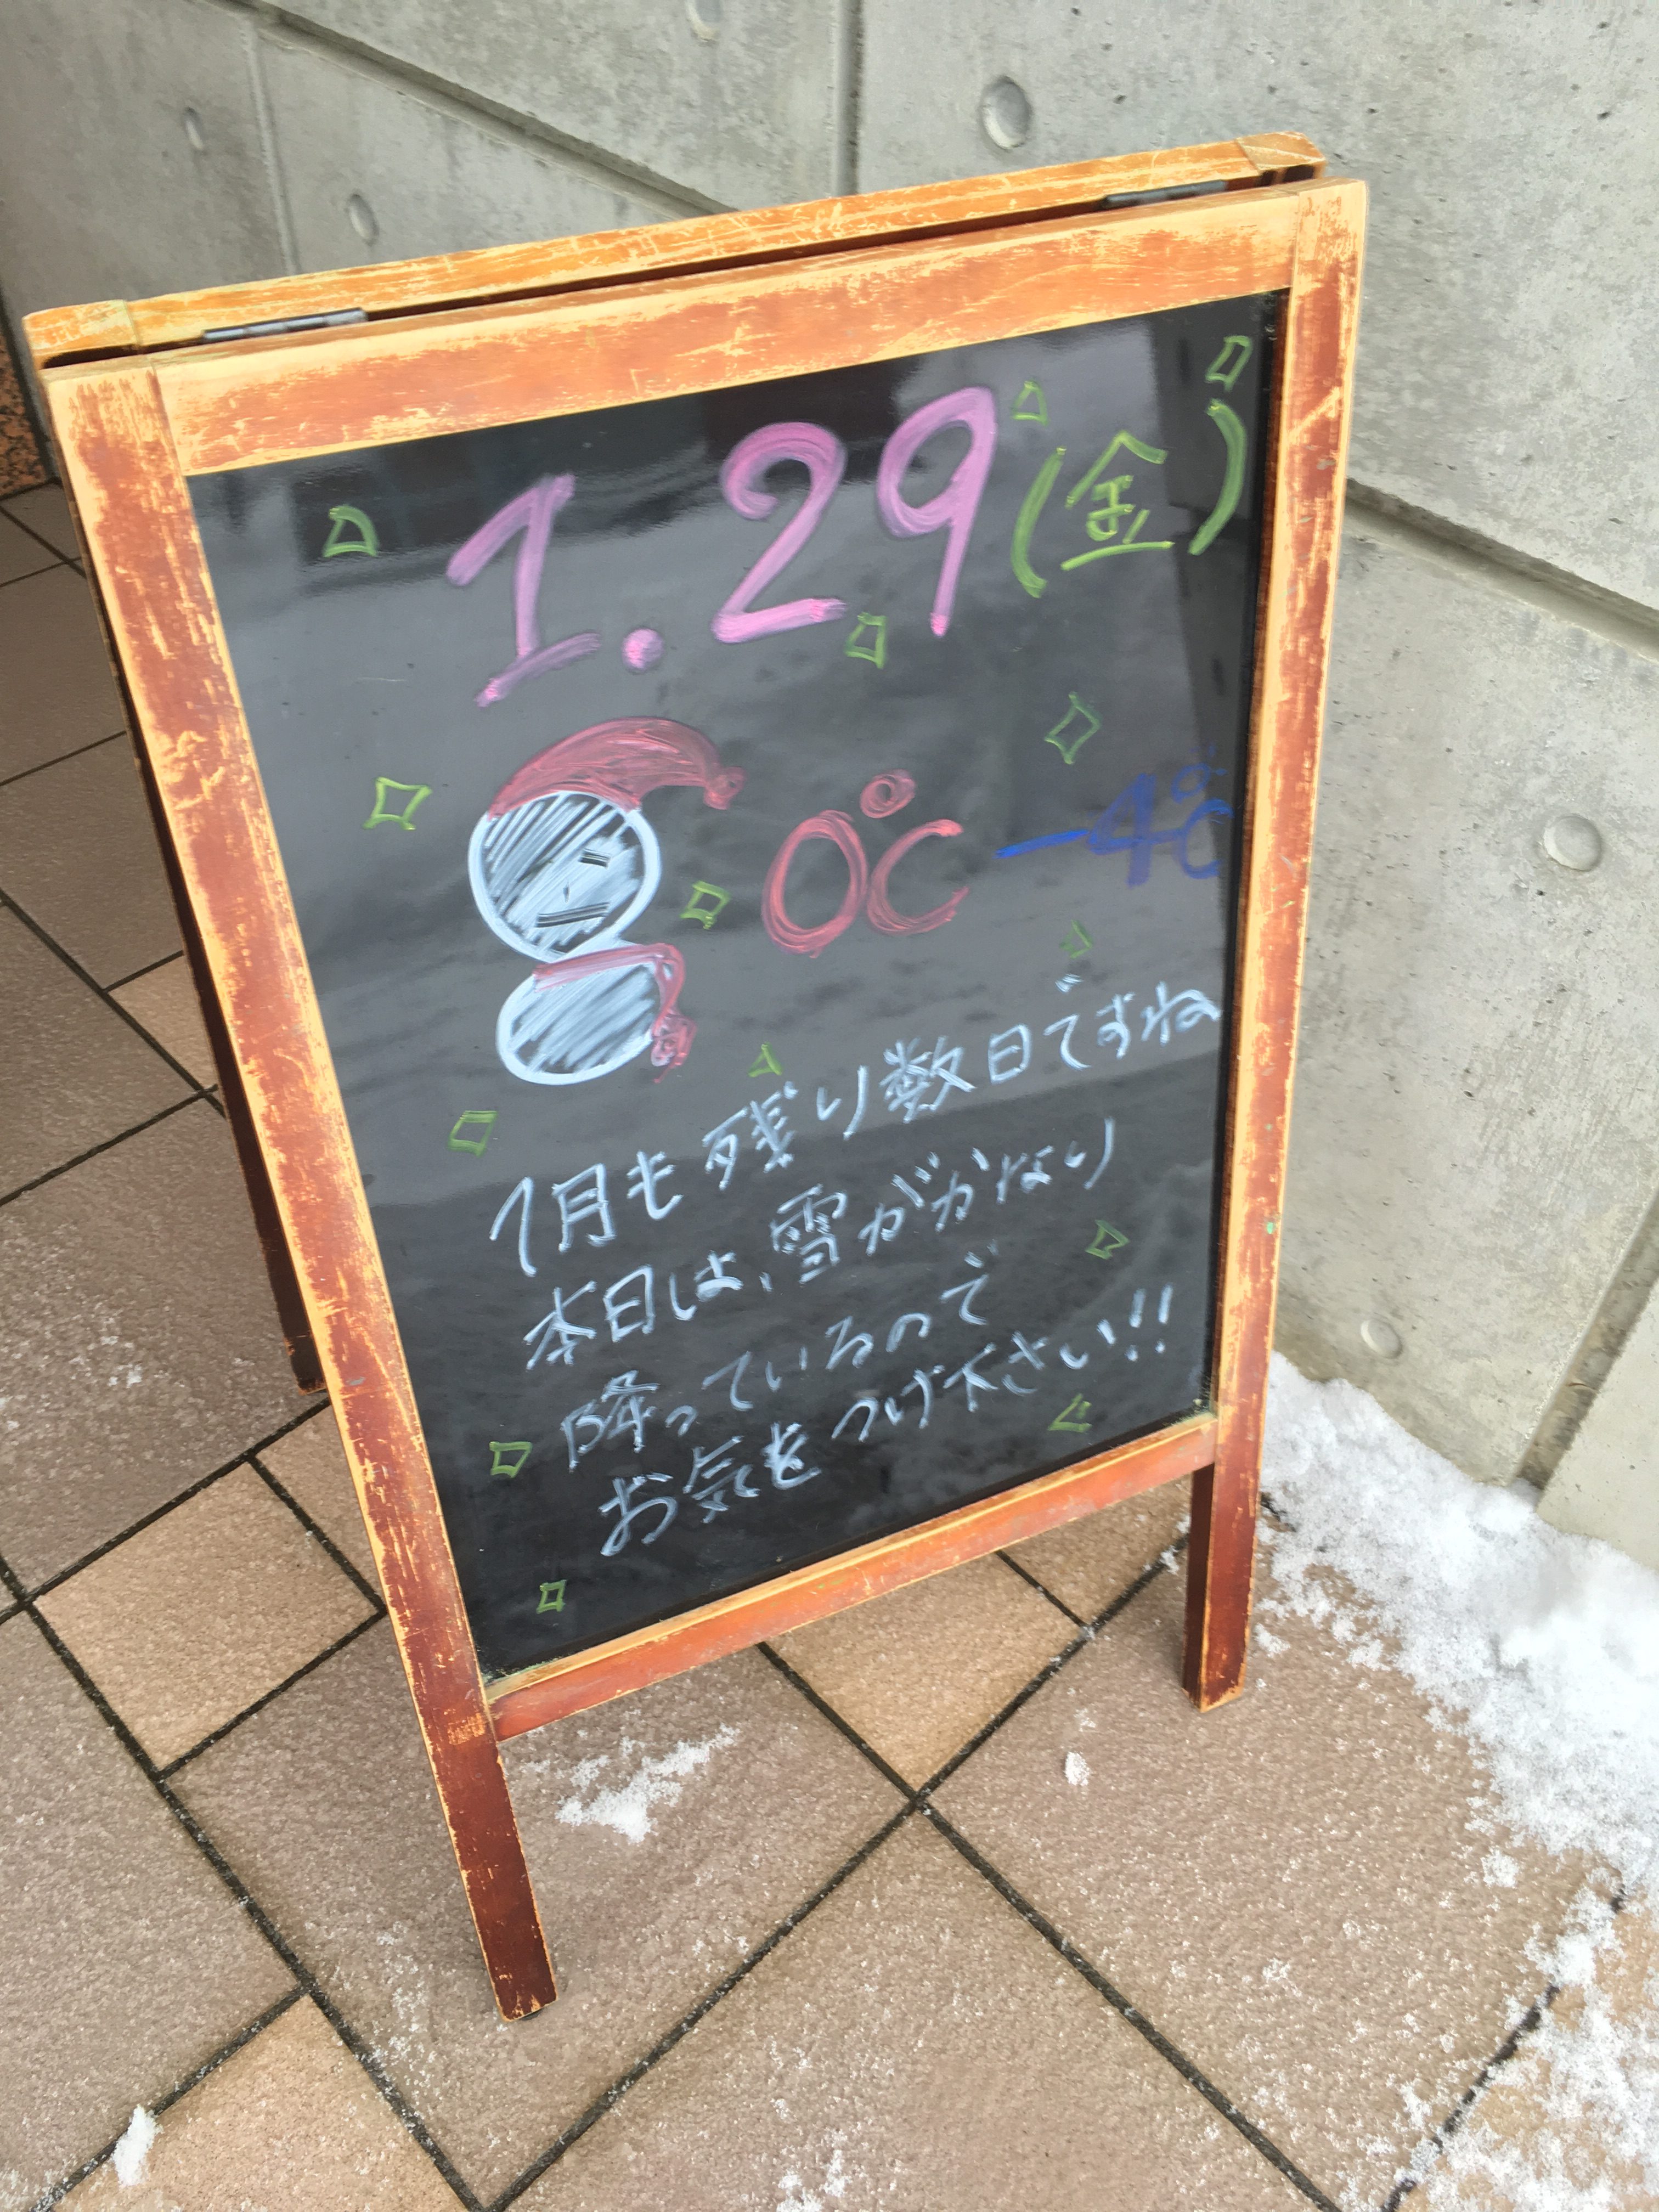 1.29(金)
0℃ -4℃
1月も残り数日ですね
本日は、雪がかなり
降っているので
お気をつけ下さい!!